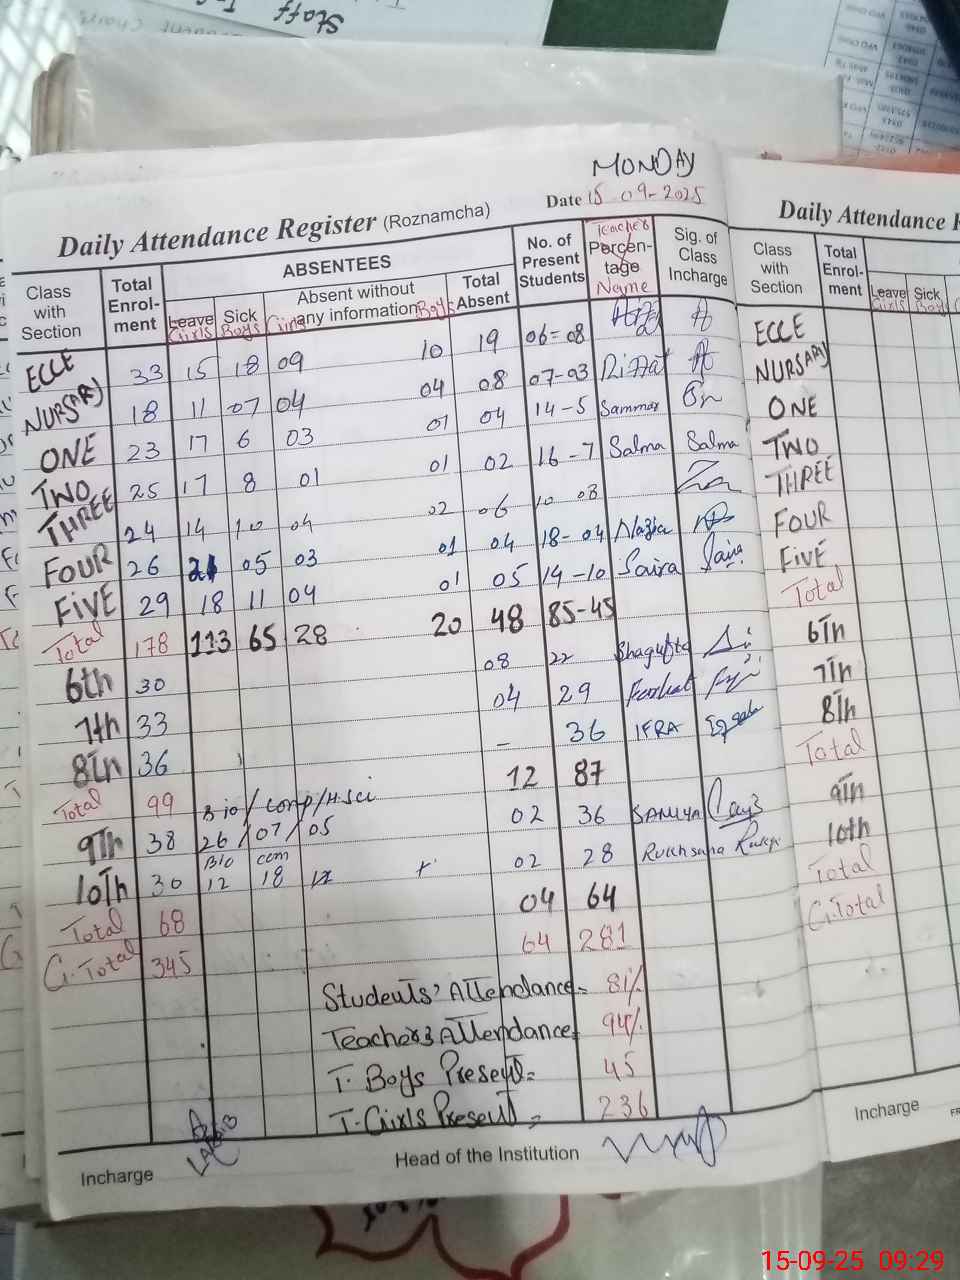 Staff
MONDAY
Date 15-09-2025
Daily Attendance Register (Roznamcha)
Class with Section
Total Enrol-ment
ABSENTEES
No. of Present Students
Teacher Percen-tage Name
Sig. of Class Incharge
Leave Girls
Sick Boys
Absent without any information
Boys
Total Absent
ECCE 33 15 18 09 10 19 06=08
NURSARY 18 11 07 04 04 08 07-03 Riffat
ONE 23 17 6 03 01 04 14-5 Sammar
TWO 25 17 8 01 01 02 16-7 Salma Salma
THREE 24 14 10 04 02 06 10 08
FOUR 26 21 05 03 01 04 18-04 Nazia
FIVE 29 18 11 04 01 05 14-10 Saira Saira
Total 178 113 65 28 20 48 85-45
6th 30 08 22 Shagufta
7th 33 04 29 Farhat
8Th 36 – 36 IFRA
Total 99 12 87
Bio/Comp/H.Sci
9Th 38 26/07/05 02 36 SANIYA
Bio com
10Th 30 12 18 02 28 Rukhsana
Total 68 04 64
G.Total 345 64 281
Students' Attendance= 81%
Teachers Attendance= 94%
T. Boys Present= 45
T. Girls Present= 236
Incharge
Head of the Institution
Daily Attendance R
Class with Section
Total Enrol-ment
Leave Girls
Sick Boys
ECCE
NURSARY
ONE
TWO
THREE
FOUR
FIVE
Total
6Th
7Th
8Th
Total
9Th
10th
Total
G.Total
Incharge
15-09-25 09:29